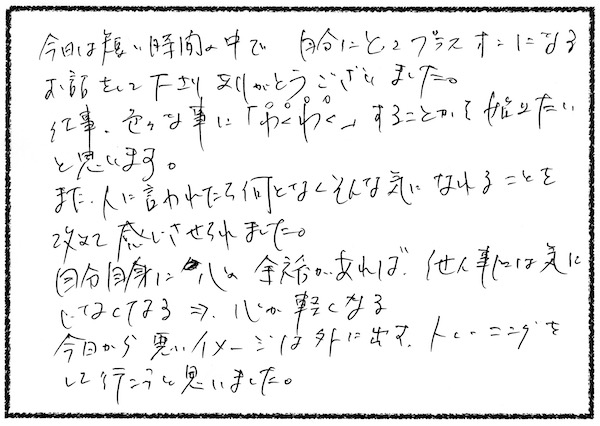 今日は短い時間の中で 自分にとってプラスすごになる
お話をして下さり ありがとうございました。
仕事、色々な事に「わくわく」することから始めたい
と思います。
また、人に言われたら何となくそんな気になれることを
改めて感じさせられました。
自分自身に 心の余裕があれば、他人事には気に
してなくなる ⇒ 心が軽くなる
今日から悪いイメージは外に出す、トレーニングを
して行こうと思いました。